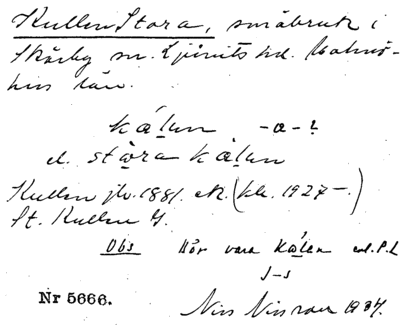 Kullen Stora, småbruk i
Skårby sn. Ljunits hd. Malmö-
hus län.
kålen -a-?
el. stora kålen
Kullen jb. 1881. ek. (kbr. 1927-.)
St. Kullen G.
Obs Bör vara kålen enl. P.L
J-s
Nr 5666.
Nils Nilsson 1934.